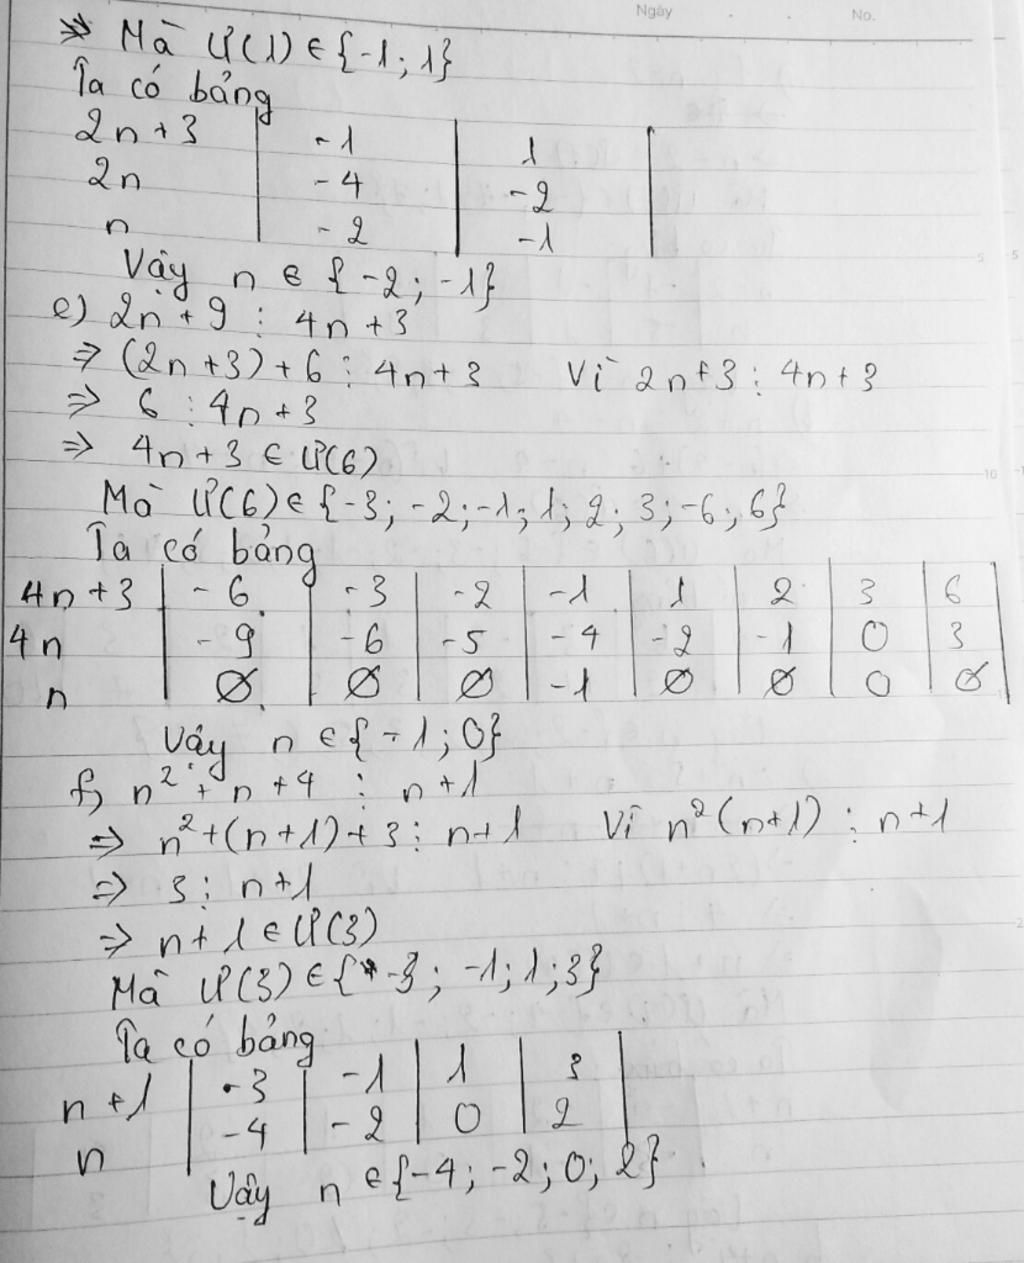 Ngày . . No.
=> Mà Ư(1) ∈ {-1; 1}
Ta có bảng
2n+3 | -1 | 1 |
2n | -4 | -2 |
n | -2 | -1 |
Vậy n ∈ {-2; -1}
e) 2n+9 ⋮ 4n+3
=> (2n+3)+6 ⋮ 4n+3 Vì 2n+3 ⋮ 4n+3
=> 6 ⋮ 4n+3
=> 4n+3 ∈ Ư(6)
Mà Ư(6) ∈ {-3; -2; -1; 1; 2; 3; -6; 6}
Ta có bảng
4n+3 | -6 | -3 | -2 | -1 | 1 | 2 | 3 | 6 |
4n | -9 | -6 | -5 | -4 | -2 | -1 | 0 | 3 |
n | ∅ | ∅ | ∅ | -1 | ∅ | ∅ | 0 | ∅ |
Vậy n ∈ {-1; 0}
f) n² + n + 4 ⋮ n+1
=> n²+(n+1)+3 ⋮ n+1 Vì n²(n+1) ⋮ n+1
=> 3 ⋮ n+1
=> n+1 ∈ Ư(3)
Mà Ư(3) ∈ {-3; -1; 1; 3}
Ta có bảng
n+1 | -3 | -1 | 1 | 3 |
n | -4 | -2 | 0 | 2 |
Vậy n ∈ {-4; -2; 0; 2}